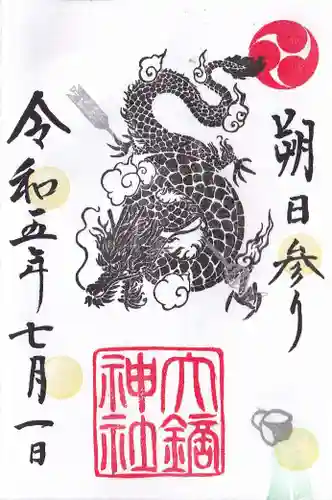 朔日参り
令和五年七月一日
大鏑
神社